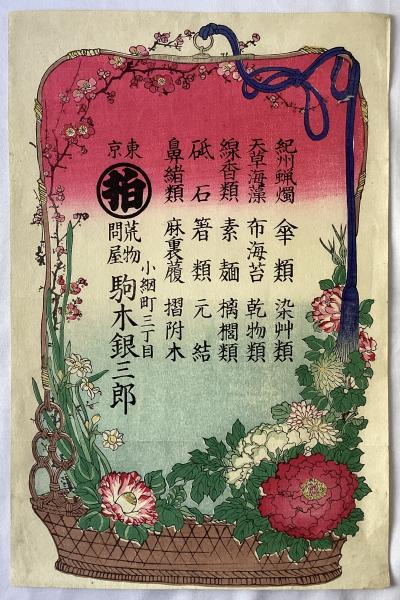 紀州蝋燭 傘類 染艸類
天草海藻 布海苔 乾物類
線香類 素麺 檎榈類
砥石 箸類 元結
鼻緒類 麻裏履 摺附木
小網町三丁目
東京 拍 荒物問屋 駒木銀三郎